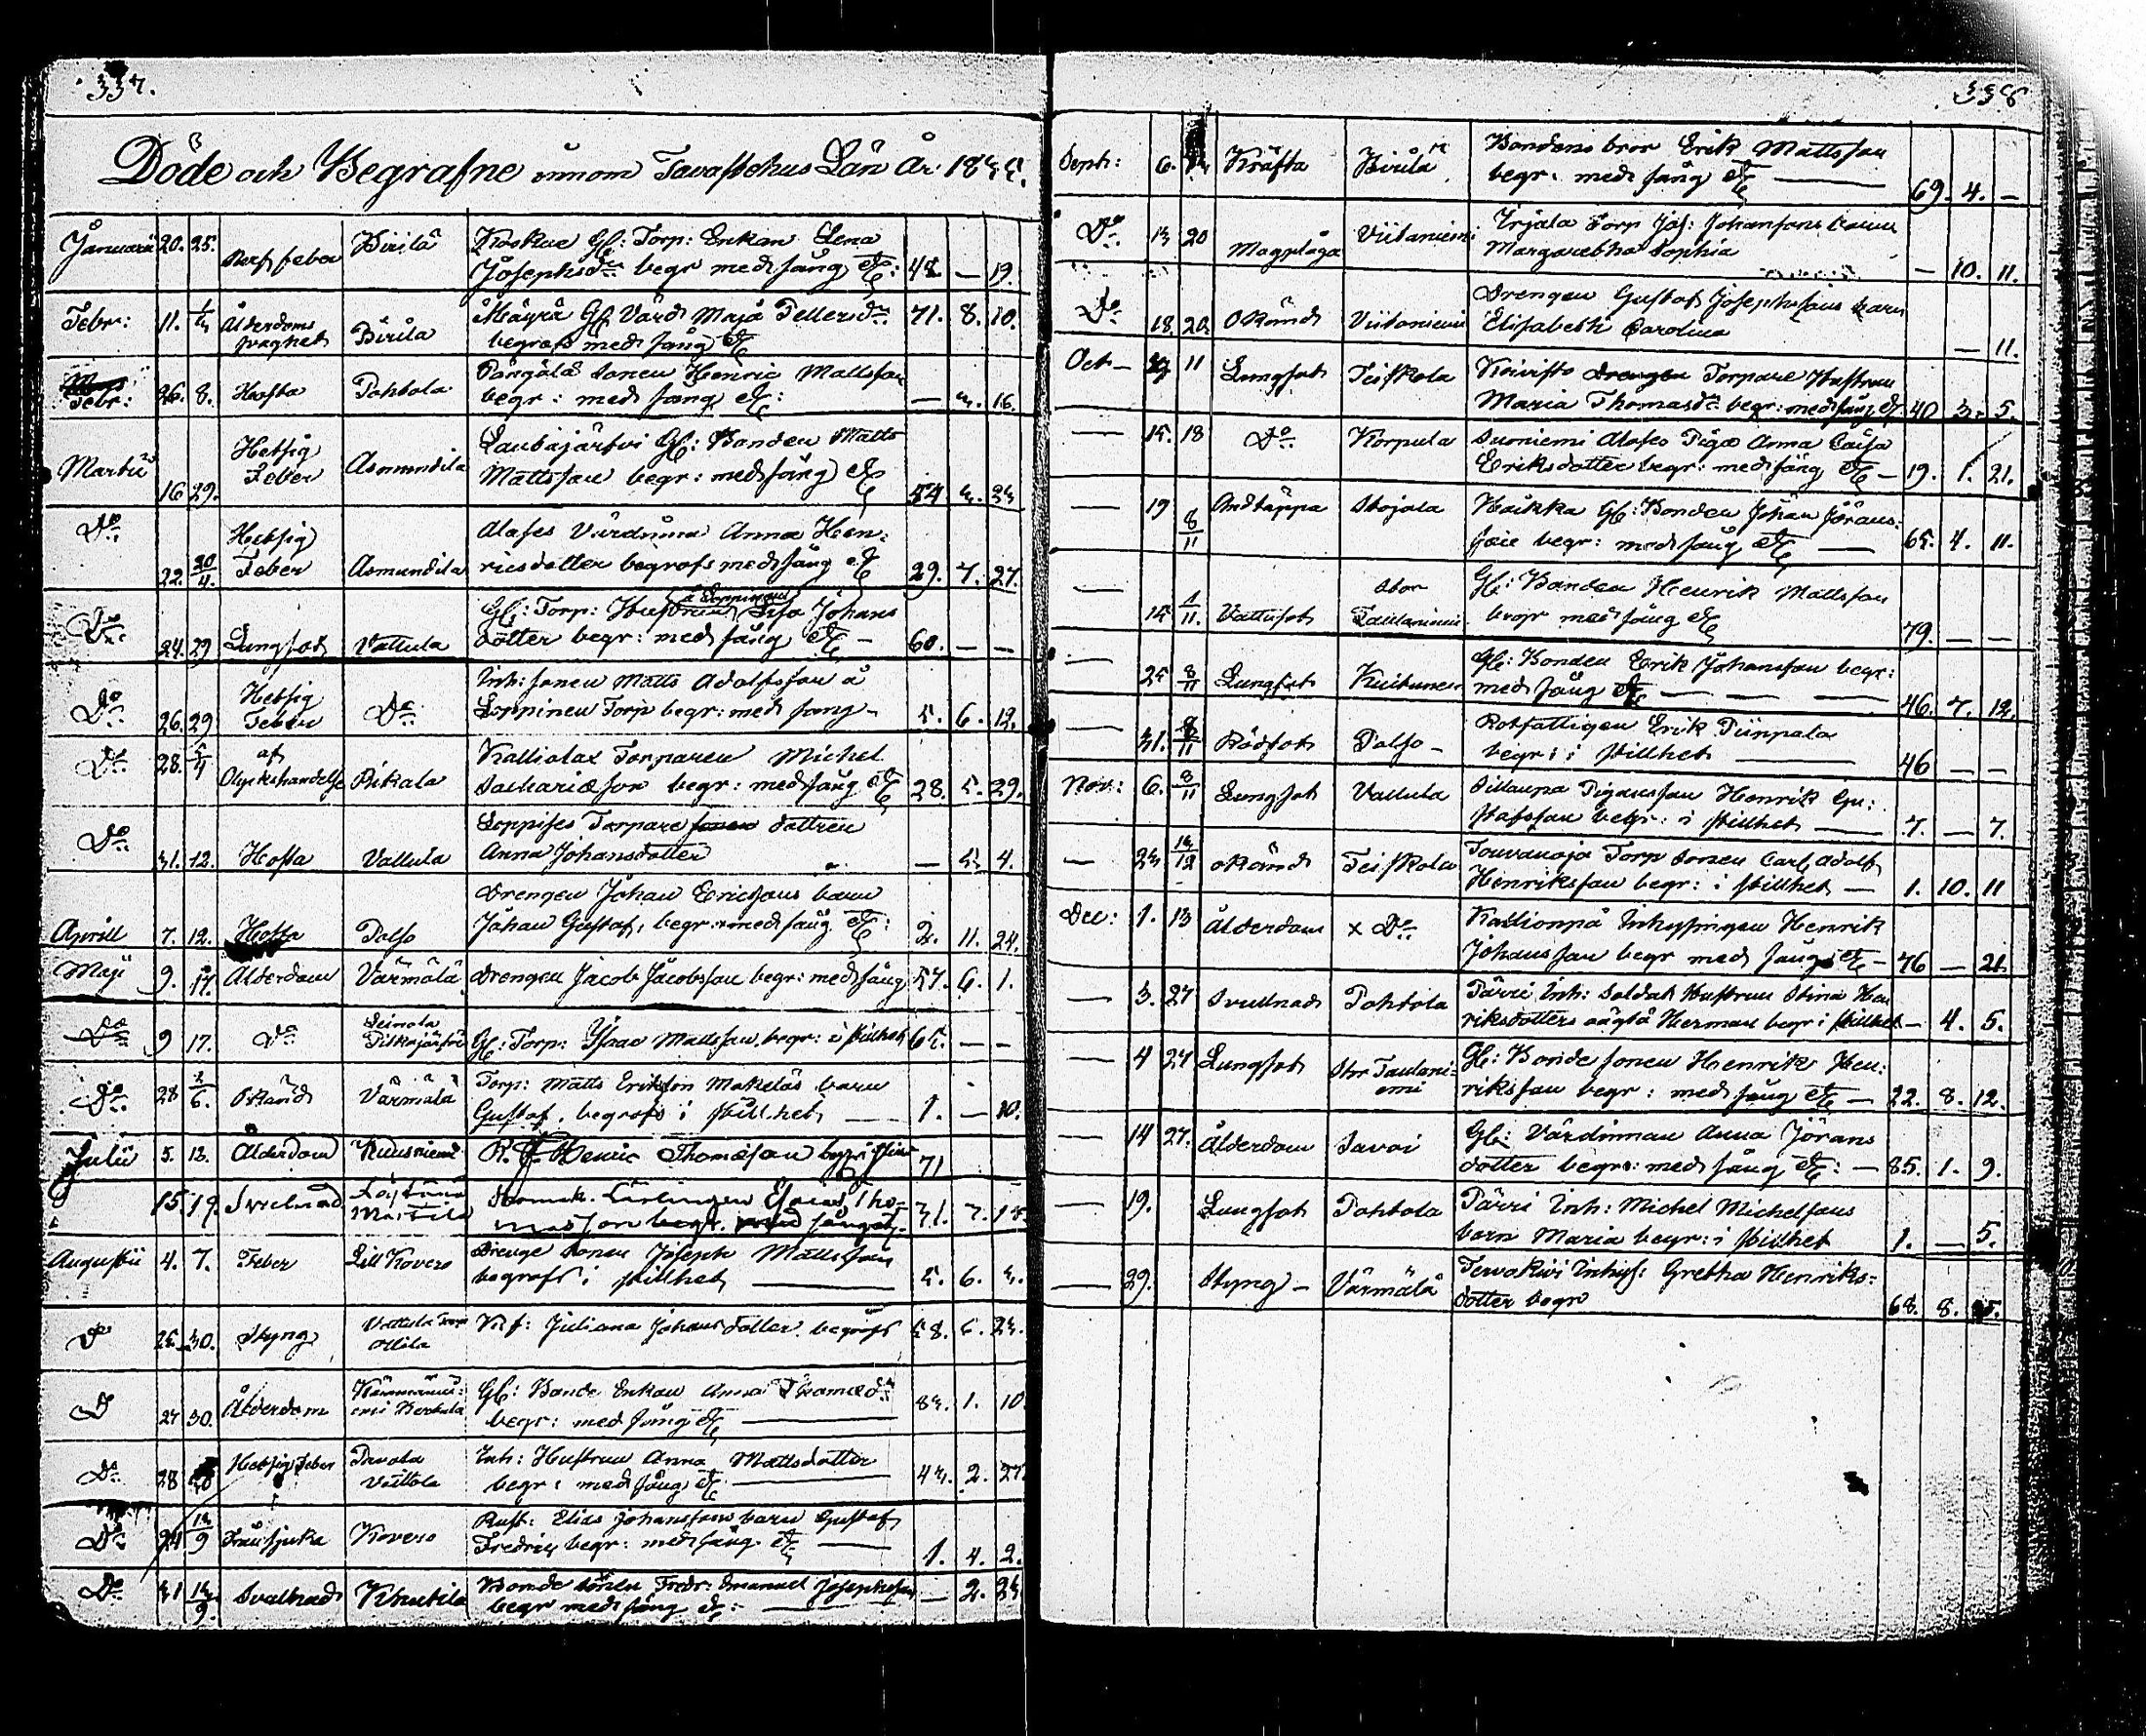 337.
Döde och Begrafne innom Tavastehus Län År 1855.
Januarii 20. 25. Nerf feber Birilä Koskue Gl: Torp: Enkan Lena
Josephsdr begr med sång etc: 48 — 19.
Febr: 11. Ålderdoms svaghet Birila Gl Värd Maja begrafs med sång etc 71. 8. 10.
Febr: 26. 8. Hosta Pohtola sonen Henric Mattsson
begr: med sång etc: — 3. 16.
Martii 16 29. Hetsig Feber Asmundila Laubajärfvi Gl: Bonden Matts
Mattsson begr: med sång etc 54 3. 23
Do 22. 20/4. Hetsig Feber Asmundila Alases Värdinna Anna Hen-
ricsdotter begrafs med sång etc 29. 7. 27.
Do 24. 29 Lungsot Vattula Gl: Torp: Hustrun å Loppinen Lisa Johans
dotter begr: med sång etc — 60. — —
Do 26. 29 Hetsig Feber Do Inh: sonen Matts Adolfsson å
Loppinen Torp begr: med sång — 5. 6. 12.
Do 28. 5/4 af Olyckshändelse Pikala Kalliolax Torparen Michel
Sachariæson begr: med sång etc 28. 5. 29.
Do 31. 12. Hosta Vallula Loppises Torpare sonen dottren
Anna Johansdotter — 5. 4.
Aprill 7. 12. Hosta Palso Drengen Johan Ericssons barn
Johan Gustaf, begr. med sång etc: 2. 11. 24.
Maji 9. 17. Ålderdom Värmälä Drengen Jacob Jacobsson begr: med sång 57. 6. 1.
Do 9 17. Do Gl: Torp: Isaac Mattsson, begr: i stillhet 65. — —
Do 28 2/6. Okänd Värmälä Torp: Matts Erikson Makeläs barn
Gustaf, begrafs i stillhet — 1. — 10.
Julii 5. 13. Ålderdom Kuusniemi R. F. Henric Thomæson begr: i stillhet 71
15. 19. Svullnad Lärlingen Esaias Tho-
masson begr. med sång etc. 31. 7.
Augustii 4. 7. Feber Lill Kovero Drenge sonen Joseph Mattsson
begrafs i stillhet — 5. 6. 3.
Do 25. 30. Styng Ottila R: f: Juliana Johansdotter begrafs 58. 6. 23.
Do 27 30. Ålderdom Gl: Bonde Enkan Anna Thomædr
begr: med sång etc — 83. 1. 10.
Do 28 Hetsig Feber Inh: Hustrun Anna Mattsdotter
begr: med sång etc — 43. 2. 27.
Do 29 13/9 Kovero Rust: Elias Johanssons barn Gustaf
Fredric begr: med sång etc — 1. 4. 2.
Do 31 13/9. Svullnad Bonde sonen Fredr: Emanuel Josephsson
begr med sång etc: — — 2. 23
338
Sept: 6. Kräfta Birilä Bondens bror Erik Mattsson
begr: med sång etc — 69. 4. —
Do 13 20 Magplåga Viitaniemi Yrjala Torp Jos: Johanssons barn
Margaretha Sophia — 10. 11.
Do 18. 20. Okänd Viitaniemi Drengen Gustaf Josephssons barn
Elisabeth Carolina — 11.
Oct — 11 Lungsot Teiskola Koivisto Drengen Torpare Hustrun
Maria Thomasdr begr: med sång etc 40 3. 5.
— 15. 18 Do Korpula Suoniemi Alases Piga Anna Caisa
Eriksdotter begr: med sång etc — 19. 1. 21.
— 19 8/11 Andtäppa Kaikka Gl: Bonden Johan Jörans-
son begr: med sång etc — 65. 4. 11.
— 15 1/11. Vattusot Stor Taulaniemi Gl: Bonden Henrik Mattsson
begr med sång etc 79. — —
— 25 8/11 Lungsot Kuitunen Gl: Bonden Erik Johansson begr:
med sång etc — — — 46. 7. 12.
— 31. 8/11 Rödsot Palso — Rotfattigen Erik Piinpala
begr: i stillhet — 46 — —
Nov: 6. 8/11 Lungsot Vallula Sillanpä Pigansson Henrik Gu-
stafsson begr: i stillhet — 7. — 7.
— 23 Okänd Teiskola Torp sonen Carl Adolf
Henriksson begr: i stillhet — 1. 10. 11
Dec: 1. 13 Ålderdom x Do Kallionpä Inhysingen Henrik
Johansson begr med sång etc — 76 — 21.
— 3. 27 Svullnad Pohtola Pärri Inh: Soldat Hustrun Stina Hen
riksdotters oägta Herman begr i stillhet — 4. 5.
— 4 27 Lungsot Stor Taulani-
emi Gl: Bonde sonen Henrik Hen-
riksson begr: med sång etc — 22. 8. 12.
— 14 27. Ålderdom Savoi Gl: Värdinnan Anna Jörans
dotter begr: med sång etc: — 85. 1. 9.
— 19. Lungsot Pohtola Pärri Inh: Michel Michelsons
barn Maria begr: i stillhet 1. — 5.
— 29. Styng — Värmälä Tervakivi Inhys: Gretha Henriks-
dotter begr 68. 8.